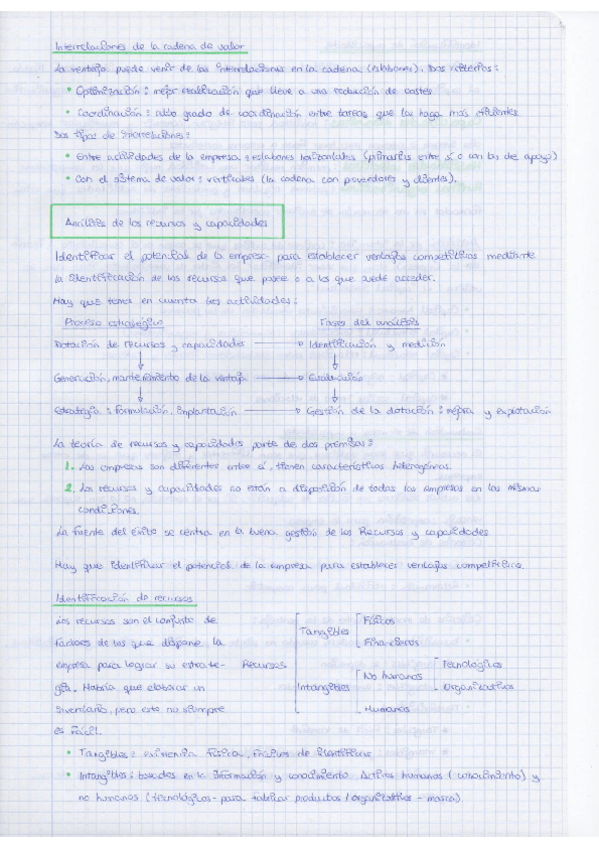 Interrelaciones de la cadena de valor
La ventaja puede venir de las interrelaciones en la cadena (eslabones). Dos criterios:
• Optimización: mejor realización que lleve a una reducción de costes
• Coordinación: alto grado de coordinación entre tareas que las haga más eficientes
Dos tipos de interrelaciones:
• Entre actividades de la empresa: eslabones horizontales (primarias entre sí o con las de apoyo)
• Con el sistema de valor: verticales (la cadena con proveedores y clientes).
Análisis de los recursos y capacidades
Identificar el potencial de la empresa para establecer ventajas competitivas mediante
la identificación de los recursos que posee o a los que puede acceder.
Hay que tener en cuenta tres actividades:
Proceso estratégico Fases del análisis
Dotación de recursos y capacidades → Identificación y medición
Generación, mantenimiento de la ventaja → Evaluación
Estrategia: formulación, implantación → Gestión de la dotación: mejora y explotación
La teoría de recursos y capacidades parte de dos premisas:
1. Las empresas son diferentes entre sí, tienen características heterogéneas.
2. Los recursos y capacidades no están a disposición de todas las empresas en las mismas
condiciones.
La fuente del éxito se centra en la buena gestión de los Recursos y capacidades
Hay que identificar el potencial de la empresa para establecer ventajas competitivas
Identificación de recursos
Los recursos son el conjunto de
factores de los que dispone la
empresa para lograr su estrate-
gia. Habría que elaborar un
inventario, pero esto no siempre
es fácil.
Recursos
Tangibles
Físicos
Financieros
Intangibles
No humanos
Tecnológicos
Organizativos
Humanos
• Tangibles: existencia física, fáciles de identificar
• Intangibles: basados en la información y conocimiento. Activos humanos (conocimiento) y
no humanos (tecnológicos - para fabricar productos / organizativos - marca)